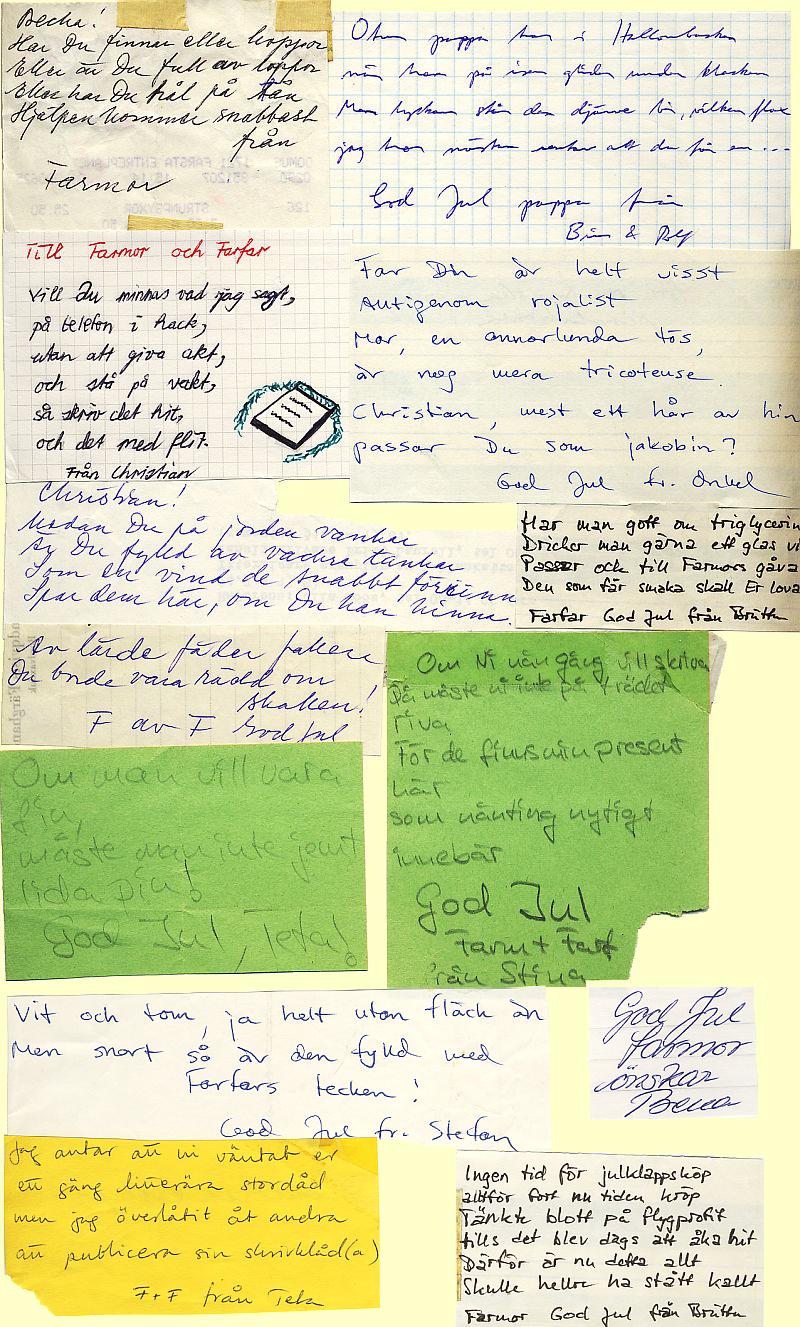 Becka!
Har Du finnar eller koppor
Eller är Du full av loppor
Eller har Du hål på tån
Hjälpen kommer snabbast
från
Farmor
pappa han i
när han på isen under klacken
Men lyckan står den djärve bi, vilken
jag tror nästan att du får en ...
God Jul pappa från
& Rolf
Till Farmor och Farfar
Vill du minnas vad jag sagt,
på telefon i hack,
utan att giva akt,
och stå på vakt,
så skriv det hit,
och det med flit.
Från Christian
Far Din är helt visst
Antigenom rojalist
Mor, en annorlunda tös,
är nog mera tricoteuse.
Christian, mest ett hår av hin
passar Du som jakobin?
God Jul fr. Onkel
Christian!
Medan Du på jorden vankar
Är Du fylld av vackra tankar
Som en vind de snabbt försvinn
Spar dem här, om Du kan hinna.
Har man gott om triglycerin
Dricker man gärna ett glas vi
Passar och till Farmors gåva
Den som får smaka skall Er lova
Farfar God Jul från Britten
Av lärde fäder
Du borde vara rädd om
F av F God Jul
Om Ni nån gång vill skriva
Då måste ni inte på träder
riva
För de finns min present
här
som nånting nytigt
innebär
God Jul
Farm + Farf
från Stina
Om man vill vara
fin,
måste man inte jemt
lida pin!
God Jul, Teta!
Vit och tom, ja helt utan fläck än
Men snart så är den fylld med
Farfars tecken!
God Jul fr. Stefan
God Jul
farmor
önskar
Becca
Jag antar att ni väntat er
ett gäng litterära stordåd
men jag överlåtit åt andra
att publicera sin skrivklåd(a)
F+F från Teta
Ingen tid för julklappsköp
alltför fort nu tiden kröp
Tänkte blott på flygprofit
tills det blev dags att åka hit
Därför är nu detta allt
Skulle hellre ha stått kallt
Farmor God Jul från Britten